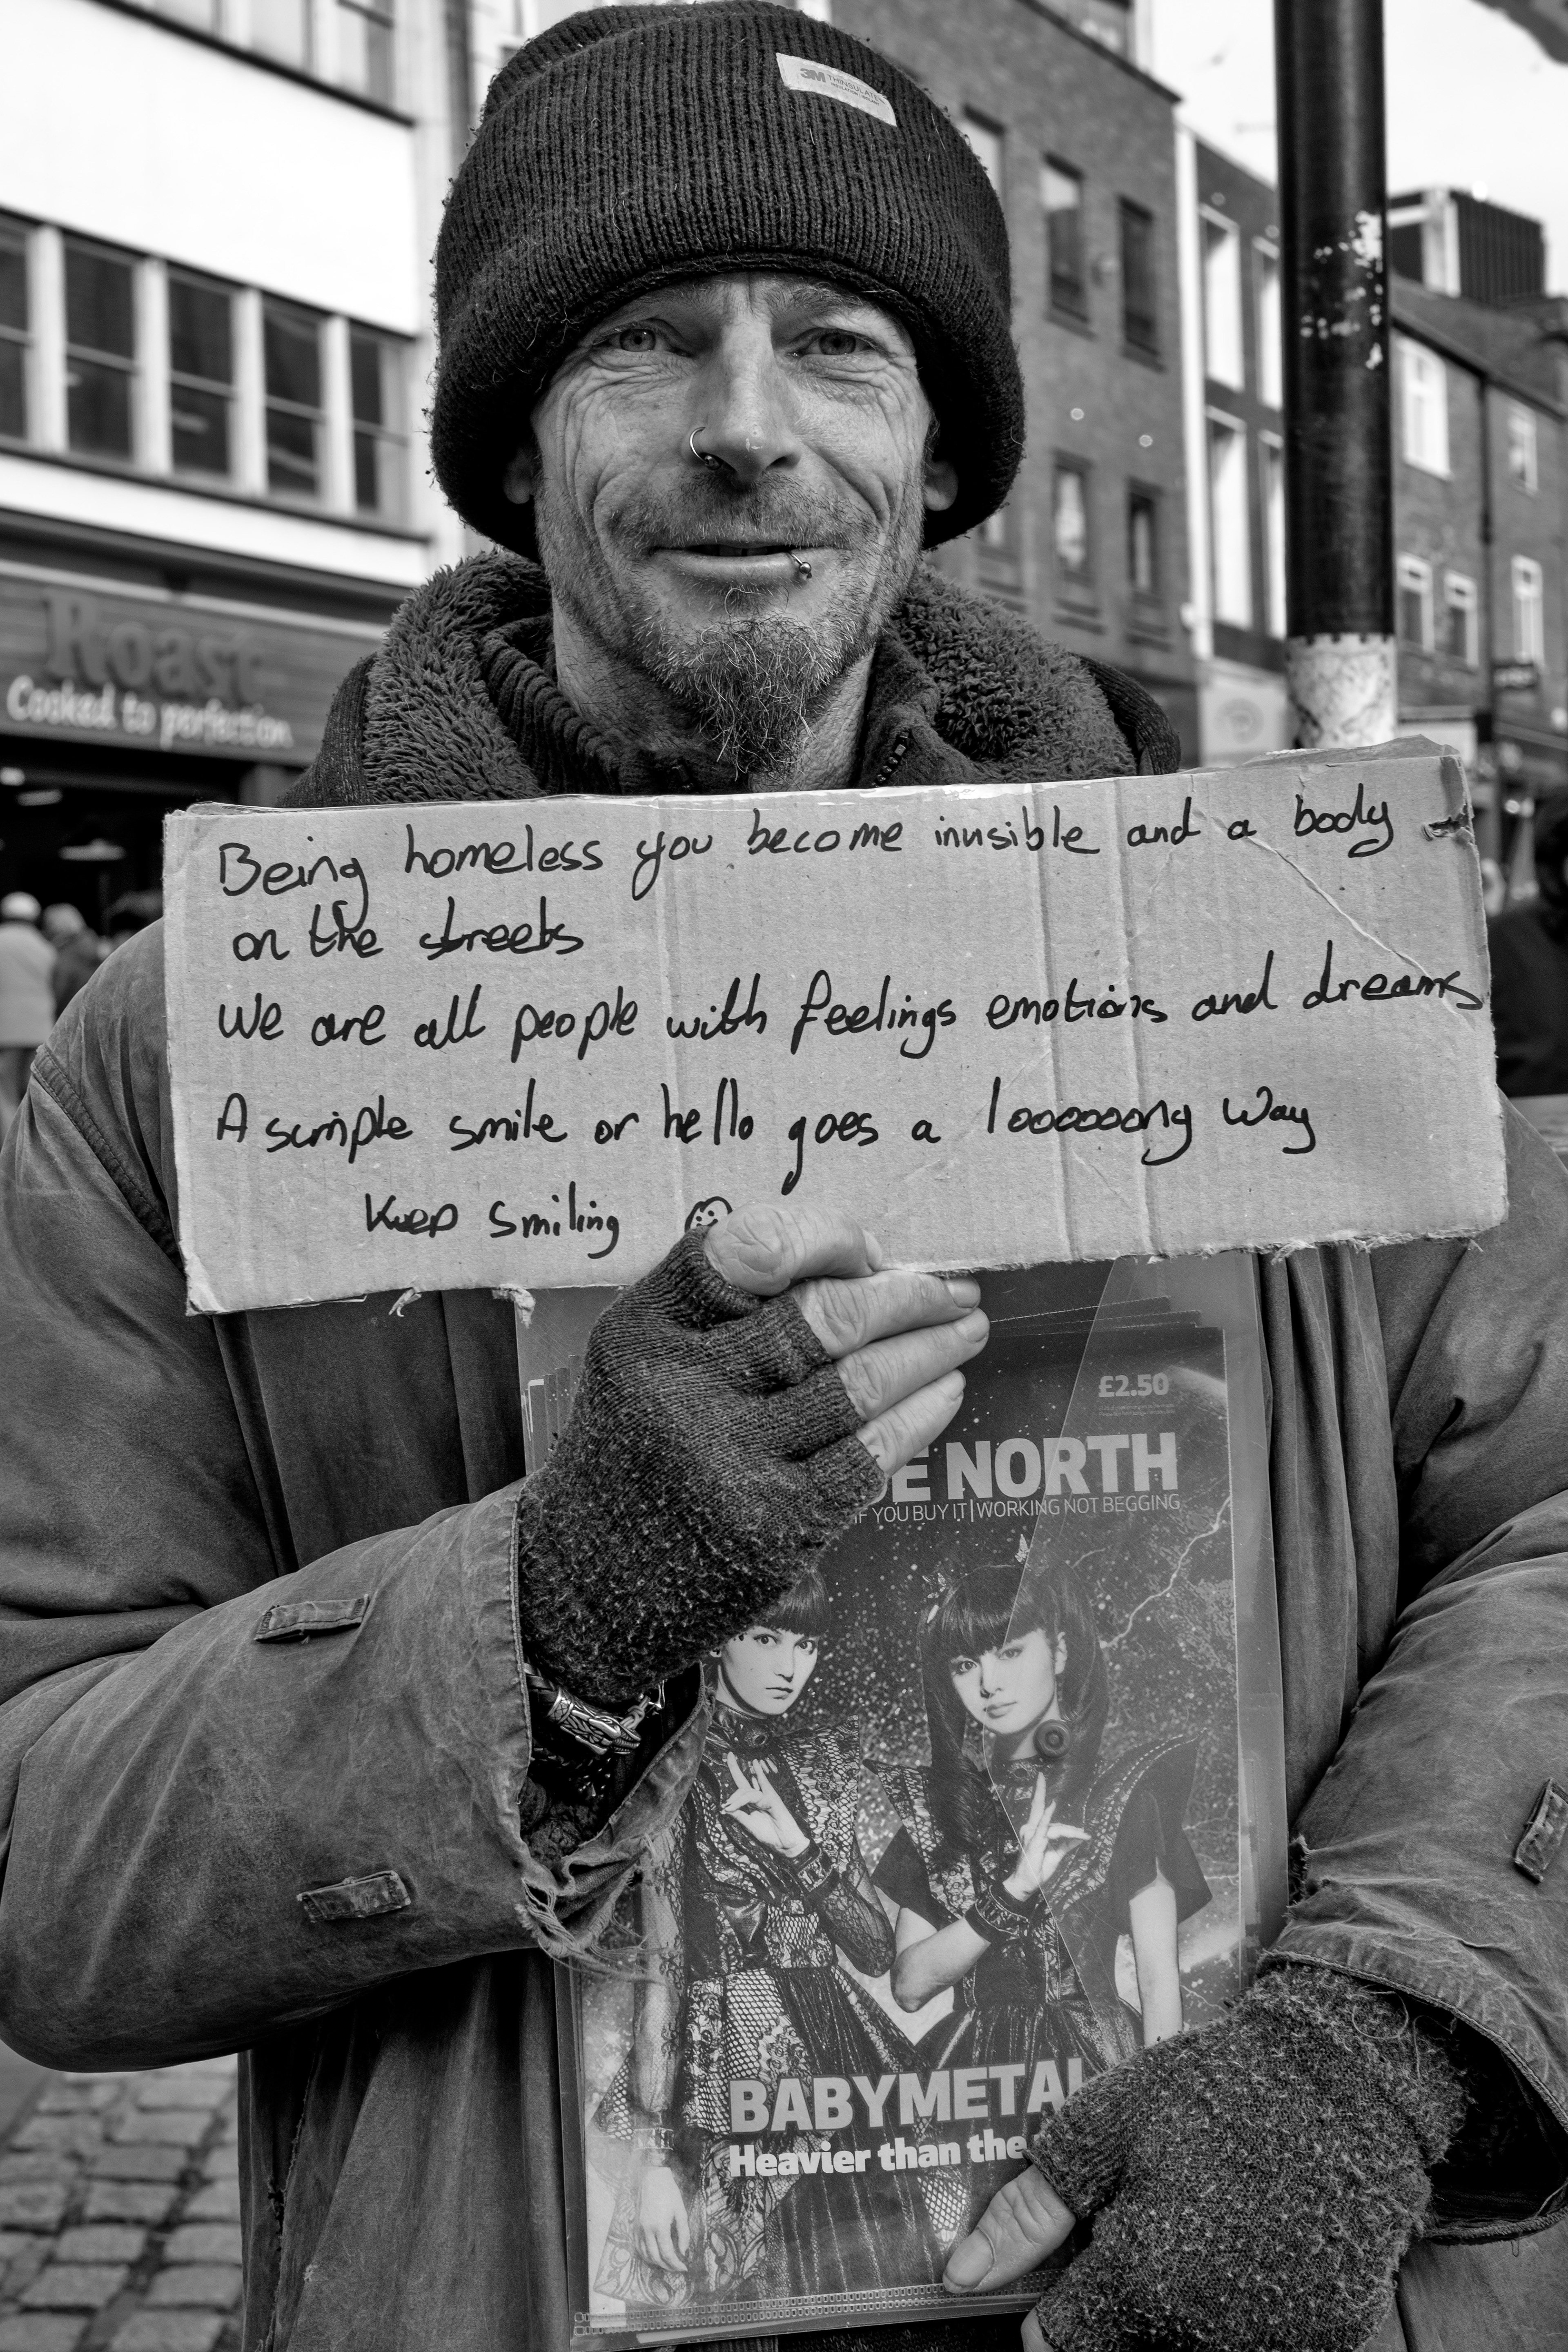 3M THINSULATE
Roast
Cooked to perfection
Being homeless you become invisible and a body
on the streets
We are all people with feelings emotions and dreams
A simple smile or hello goes a looooooong way
Keep smiling
£2.50
E NORTH
IF YOU BUY IT | WORKING NOT BEGGING
BABYMETAL
Heavier than the